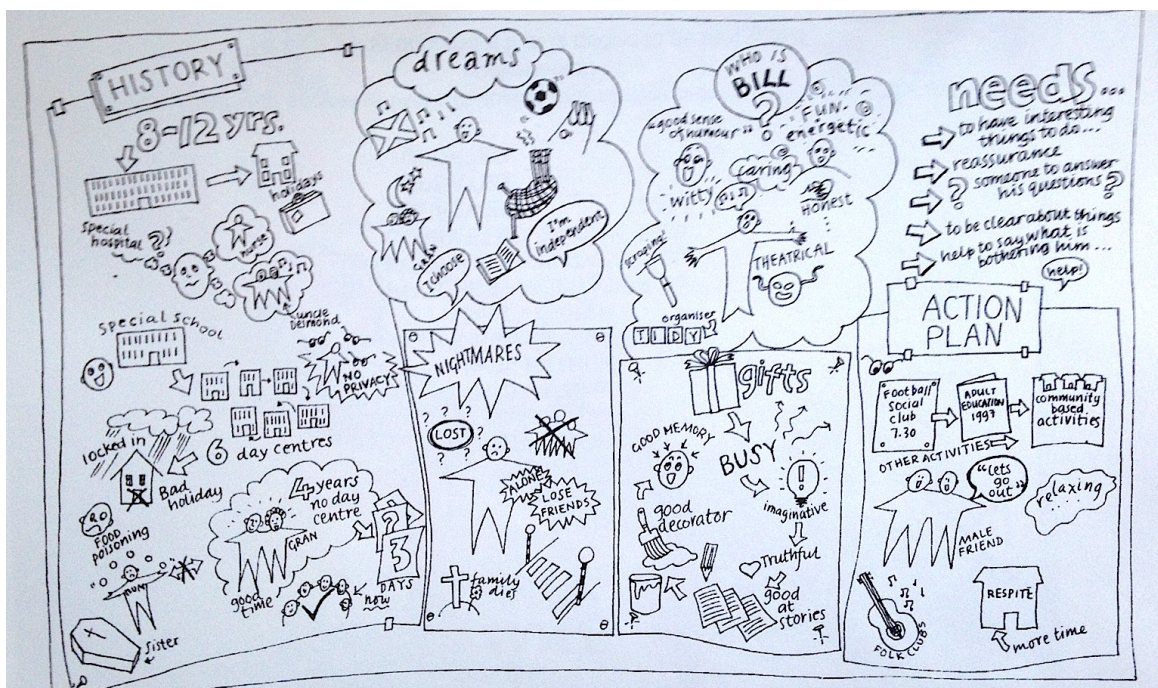 HISTORY
8-12 yrs.
holidays
special
hospital ??
nurse
uncle
Desmond
special school
NO
PRIVACY
6 day centres
locked in
Bad
holiday
FOOD
poisoning
4 years
no day
centre
GRAN
good
time
?
3
DAYS
now
MUM
Sister
dreams
GRAN
I choose
I'm
independent
NIGHTMARES
? ? ?
?
LOST
? ?
ALONE
LOSE
FRIENDS
family
dies
WHO IS
BILL
?
"good sense
of humour"
FUN-
energetic
caring
witty
Honest
scraping
THEATRICAL
organiser
TIDY
gifts
GOOD MEMORY
BUSY
imaginative
good
decorator
Truthful
good
at
stories
needs...
to have interesting
things to do...
reassurance
? someone to answer
his questions ?
to be clear about things
help to say what is
bothering him...
help!
ACTION
PLAN
Football
Social
club
7.30
ADULT
EDUCATION
1997
community
based
activities
OTHER ACTIVITIES
"Lets
go
out"
relaxing
MALE
FRIEND
FOLK CLUBS
RESPITE
more time